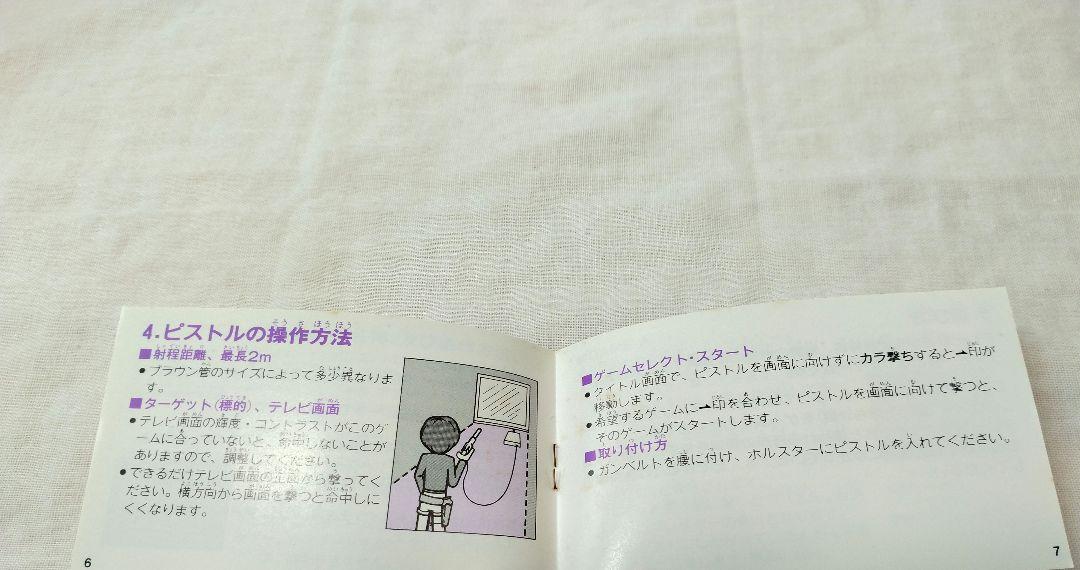 4.ピストルの操作方法
■射程距離、最長2m
●ブラウン管のサイズによって多少異なりま
す。
■ターゲット(標的)、テレビ画面
●テレビ画面の輝度・コントラストがこのゲ
ームに合っていないと、命中しないことが
ありますので、調整してください。
●できるだけテレビ画面の正面から撃ってく
ださい。横方向から画面を撃つと命中しに
くくなります。
6
■ゲームセレクト・スタート
●タイトル画面で、ピストルを画面に向けずにカラ撃ちすると→印が
移動します。
●希望するゲームに→印を合わせ、ピストルを画面に向けて撃つと、
そのゲームがスタートします。
■取り付け方
●ガンベルトを腰に付け、ホルスターにピストルを入れてください。
7